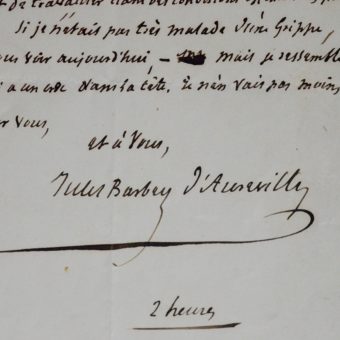 de travailler dans des conditions
Si je n'étais pas très malade d'une Grippe,
vous voir aujourd'hui — mais je ressemble
a un dans la tête. Je n'en vais pas moins,
vous,
et à Vous,
Jules Barbey d'Aurevilly
2 heures